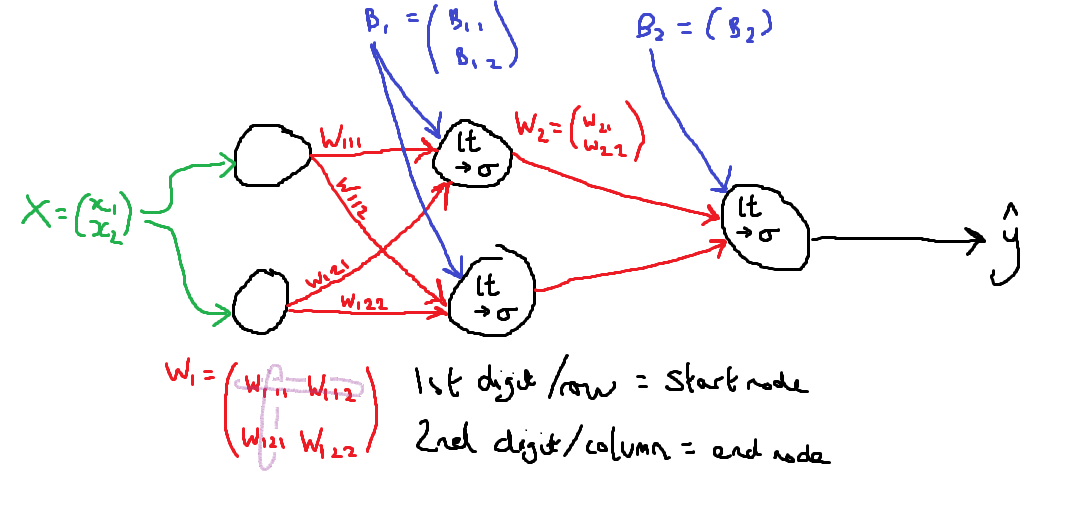 B₁ = (B₁₁
B₁₂)
B₂ = (B₂)
W₁₁₁
lt
→σ
W₂ = (w₂₁
w₂₂)
W₁₁₂
X = (x₁
x₂)
lt
→σ
ŷ
W₁₂₁
W₁₂₂
lt
→σ
W₁ = (W₁₁₁ W₁₁₂
W₁₂₁ W₁₂₂)
1st digit/row = start node
2nd digit/column = end node